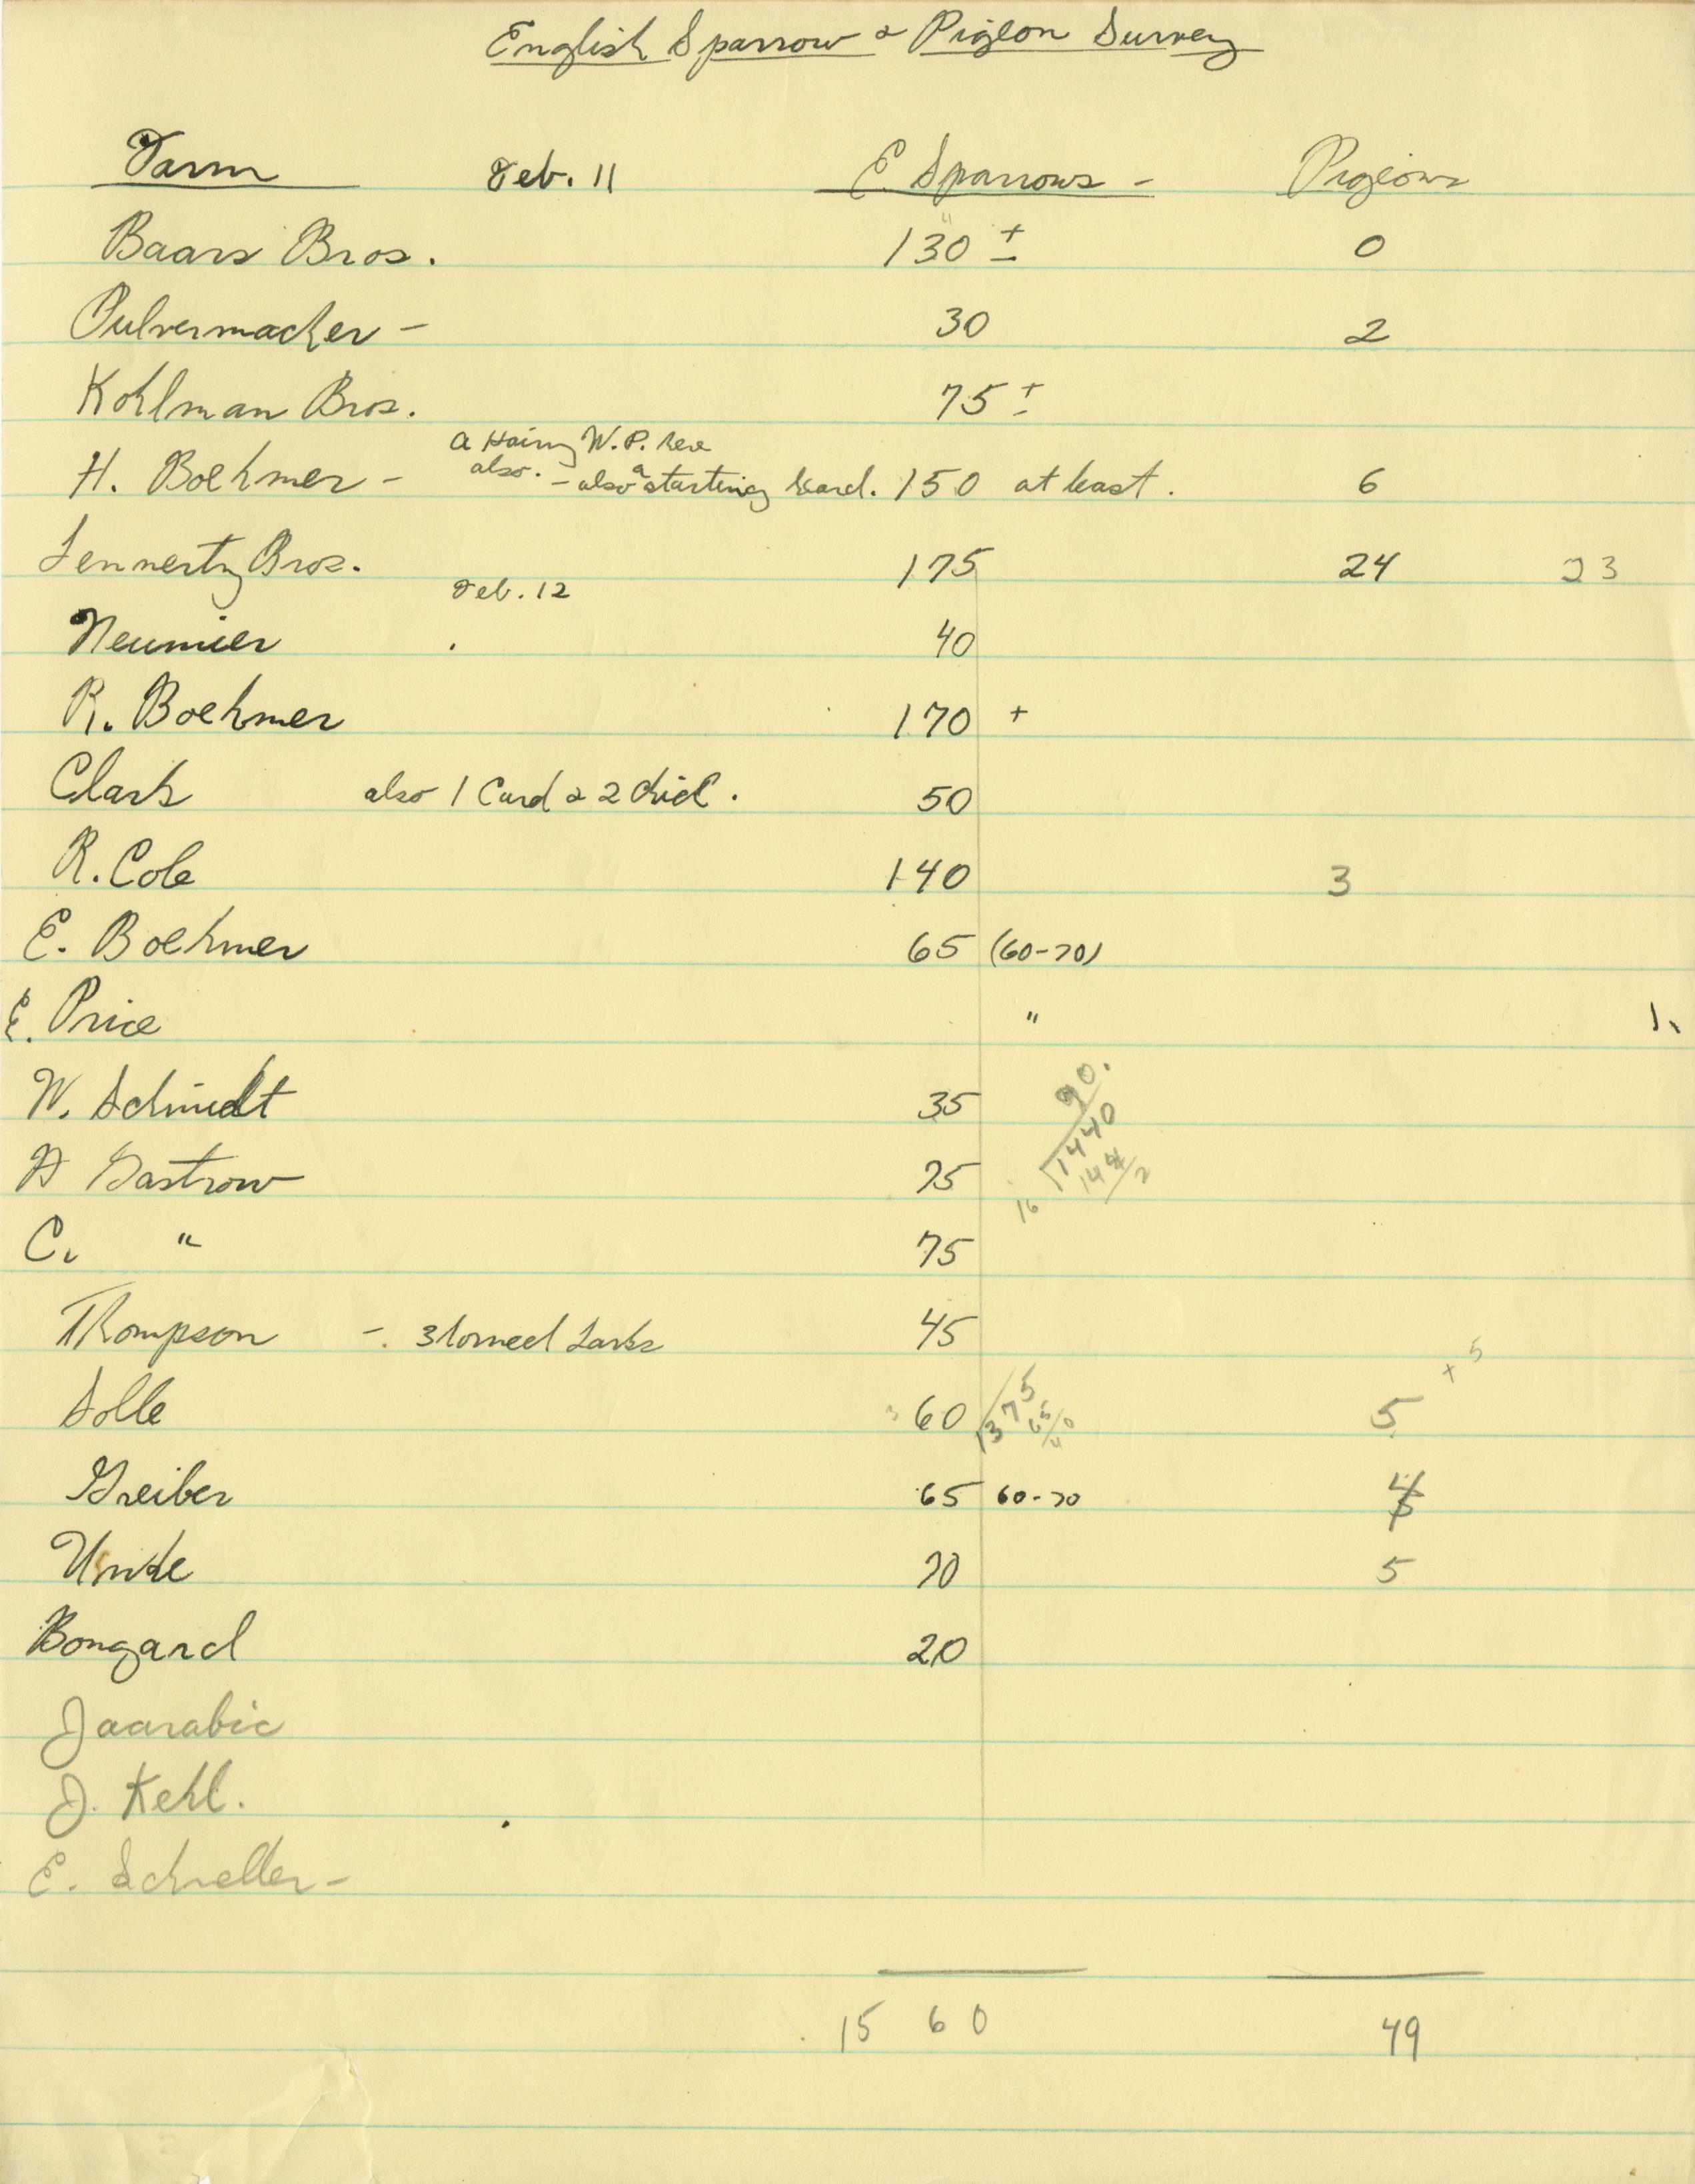 English Sparrow & Pigeon Survey
Farm Feb. 11 E. Sparrows - Pigeons
Baars Bros. 130 ± 0
Pulvermacher - 30 2
Kohlman Bros. 75 ±
a Hairy W.P. here
H. Boehmer - also. - also a starting heard. 150 at least. 6
Lennertz Bros. 175 24 23
Feb. 12
Neumier 40
R. Boehmer 170 +
Clark also 1 Card & 2 Chick. 50
R. Cole 140 3
E. Boehmer 65 (60-70)
E. Price " 1
90.
W. Schmidt 35 1440
144
2
16
H Gastrow 75
C. " 75
Thompson - 3 Horned Larks 45
+ 5
Solle 60 1375 5
65
40
Greiber 65 60-70 4
70 5
Bongard 20
Jaarabic
J. Kehl.
E. Schneller -
1560 49